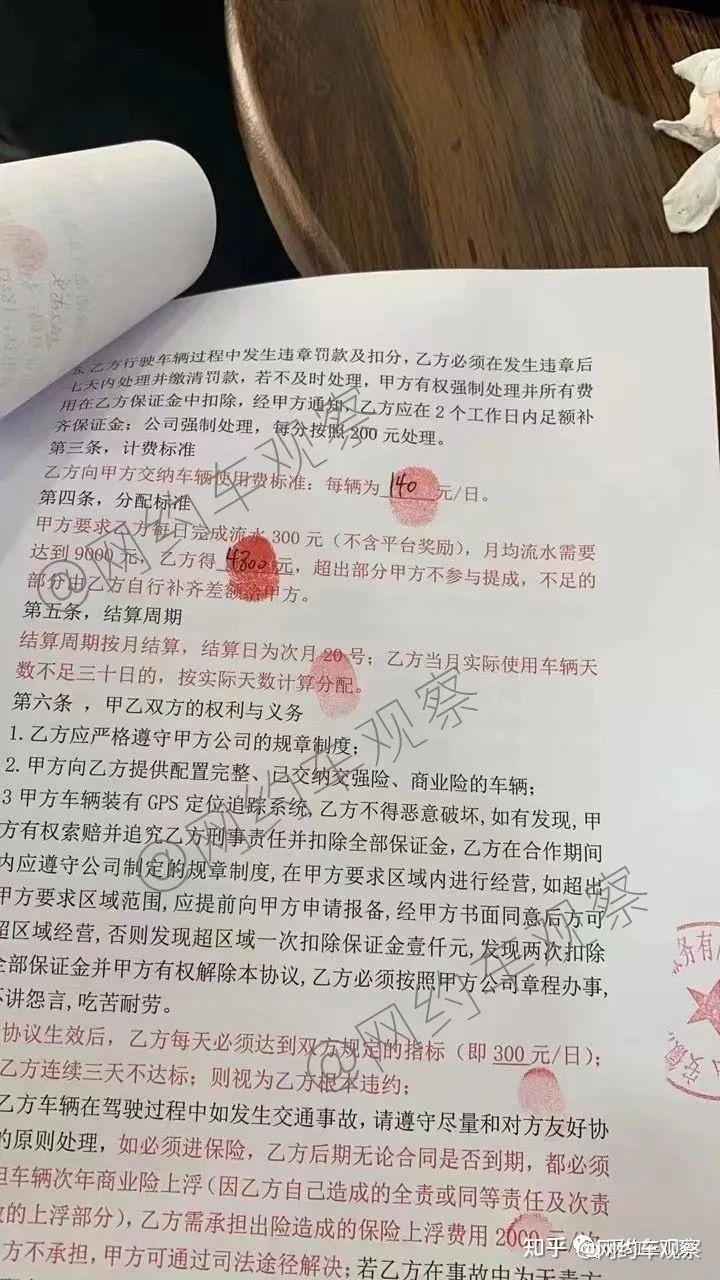 5. 乙方行驶车辆过程中发生违章罚款及扣分，乙方必须在发生违章后
七天内处理并缴清罚款，若不及时处理，甲方有权强制处理并所有费
用在乙方保证金中扣除，经甲方通知，乙方应在2个工作日内足额补
齐保证金；公司强制处理，每分按照200元处理。
第三条，计费标准
乙方向甲方交纳车辆使用费标准：每辆为 140 元/日。
第四条，分配标准
甲方要求乙方每日完成流水300元（不含平台奖励），月均流水需要
达到9000元，乙方得 4800 元，超出部分甲方不参与提成，不足的
部分由乙方自行补齐差额给甲方。
第五条，结算周期
结算周期按月结算，结算日为次月20号；乙方当月实际使用车辆天
数不足三十日的，按实际天数计算分配。
第六条 ，甲乙双方的权利与义务
1.乙方应严格遵守甲方公司的规章制度；
2.甲方向乙方提供配置完整、已交纳交强险、商业险的车辆；
3 甲方车辆装有GPS定位追踪系统，乙方不得恶意破坏，如有发现，甲
方有权索赔并追究乙方刑事责任并扣除全部保证金，乙方在合作期间
内应遵守公司制定的规章制度，在甲方要求区域内进行经营，如超出
甲方要求区域范围，应提前向甲方申请报备，经甲方书面同意后方可
超区域经营，否则发现超区域一次扣除保证金壹仟元，发现两次扣除
全部保证金并甲方有权解除本协议，乙方必须按照甲方公司章程办事，
不讲怨言，吃苦耐劳。
协议生效后，乙方每天必须达到双方规定的指标（即300元/日）；
乙方连续三天不达标；则视为乙方根本违约；
乙方车辆在驾驶过程中如发生交通事故，请遵守尽量和对方友好协
的原则处理，如必须进保险，乙方后期无论合同是否到期，都必须
担车辆次年商业险上浮（因乙方自己造成的全责或同等责任及次责
的上浮部分），乙方需承担出险造成的保险上浮费用2000元/次
方不承担，甲方可通过司法途径解决；若乙方在事故中为无责方
务有
安徽
@网约车观察
@网约车观察
@网约车观察
知乎 @网约车观察